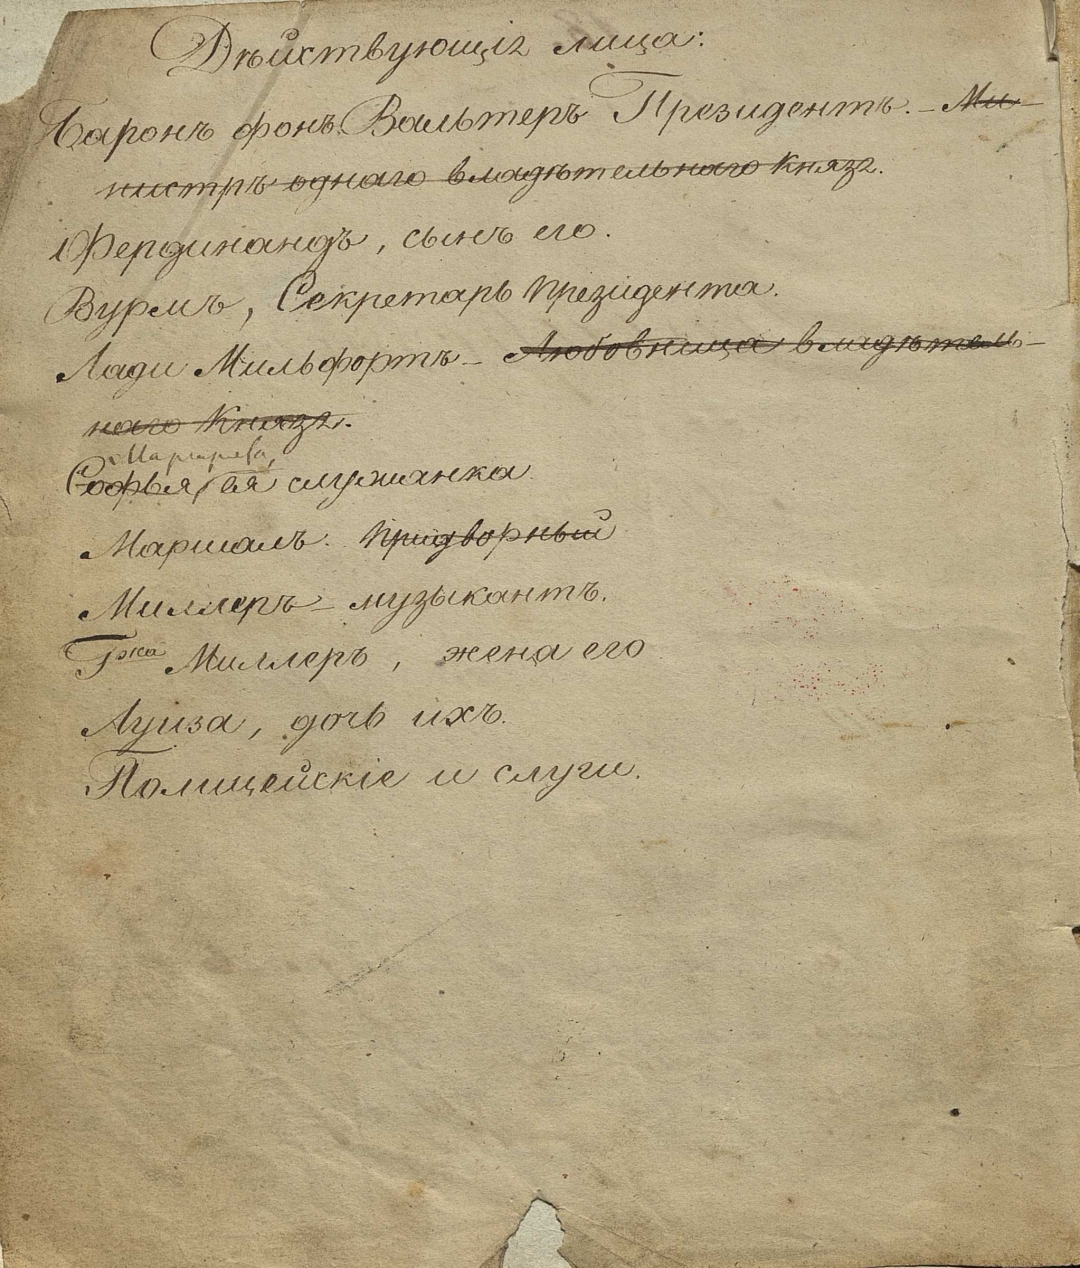 Дѣйствующія лица:
Баронъ фонъ Вальтеръ Президентъ. – Ми-
нистръ однаго владѣтельнаго Князя.
Фердинандъ, сынъ его.
Вурмъ, Секретарь Президента.
Лади Мильфортъ – Любовница владѣтель-
наго Князя.
Софья, ея служанка
Маршалъ. придворный
Миллеръ – музыкантъ.
Гжа Миллеръ, жена его
Луиза, дочь ихъ.
Полицейскіе и слуги.